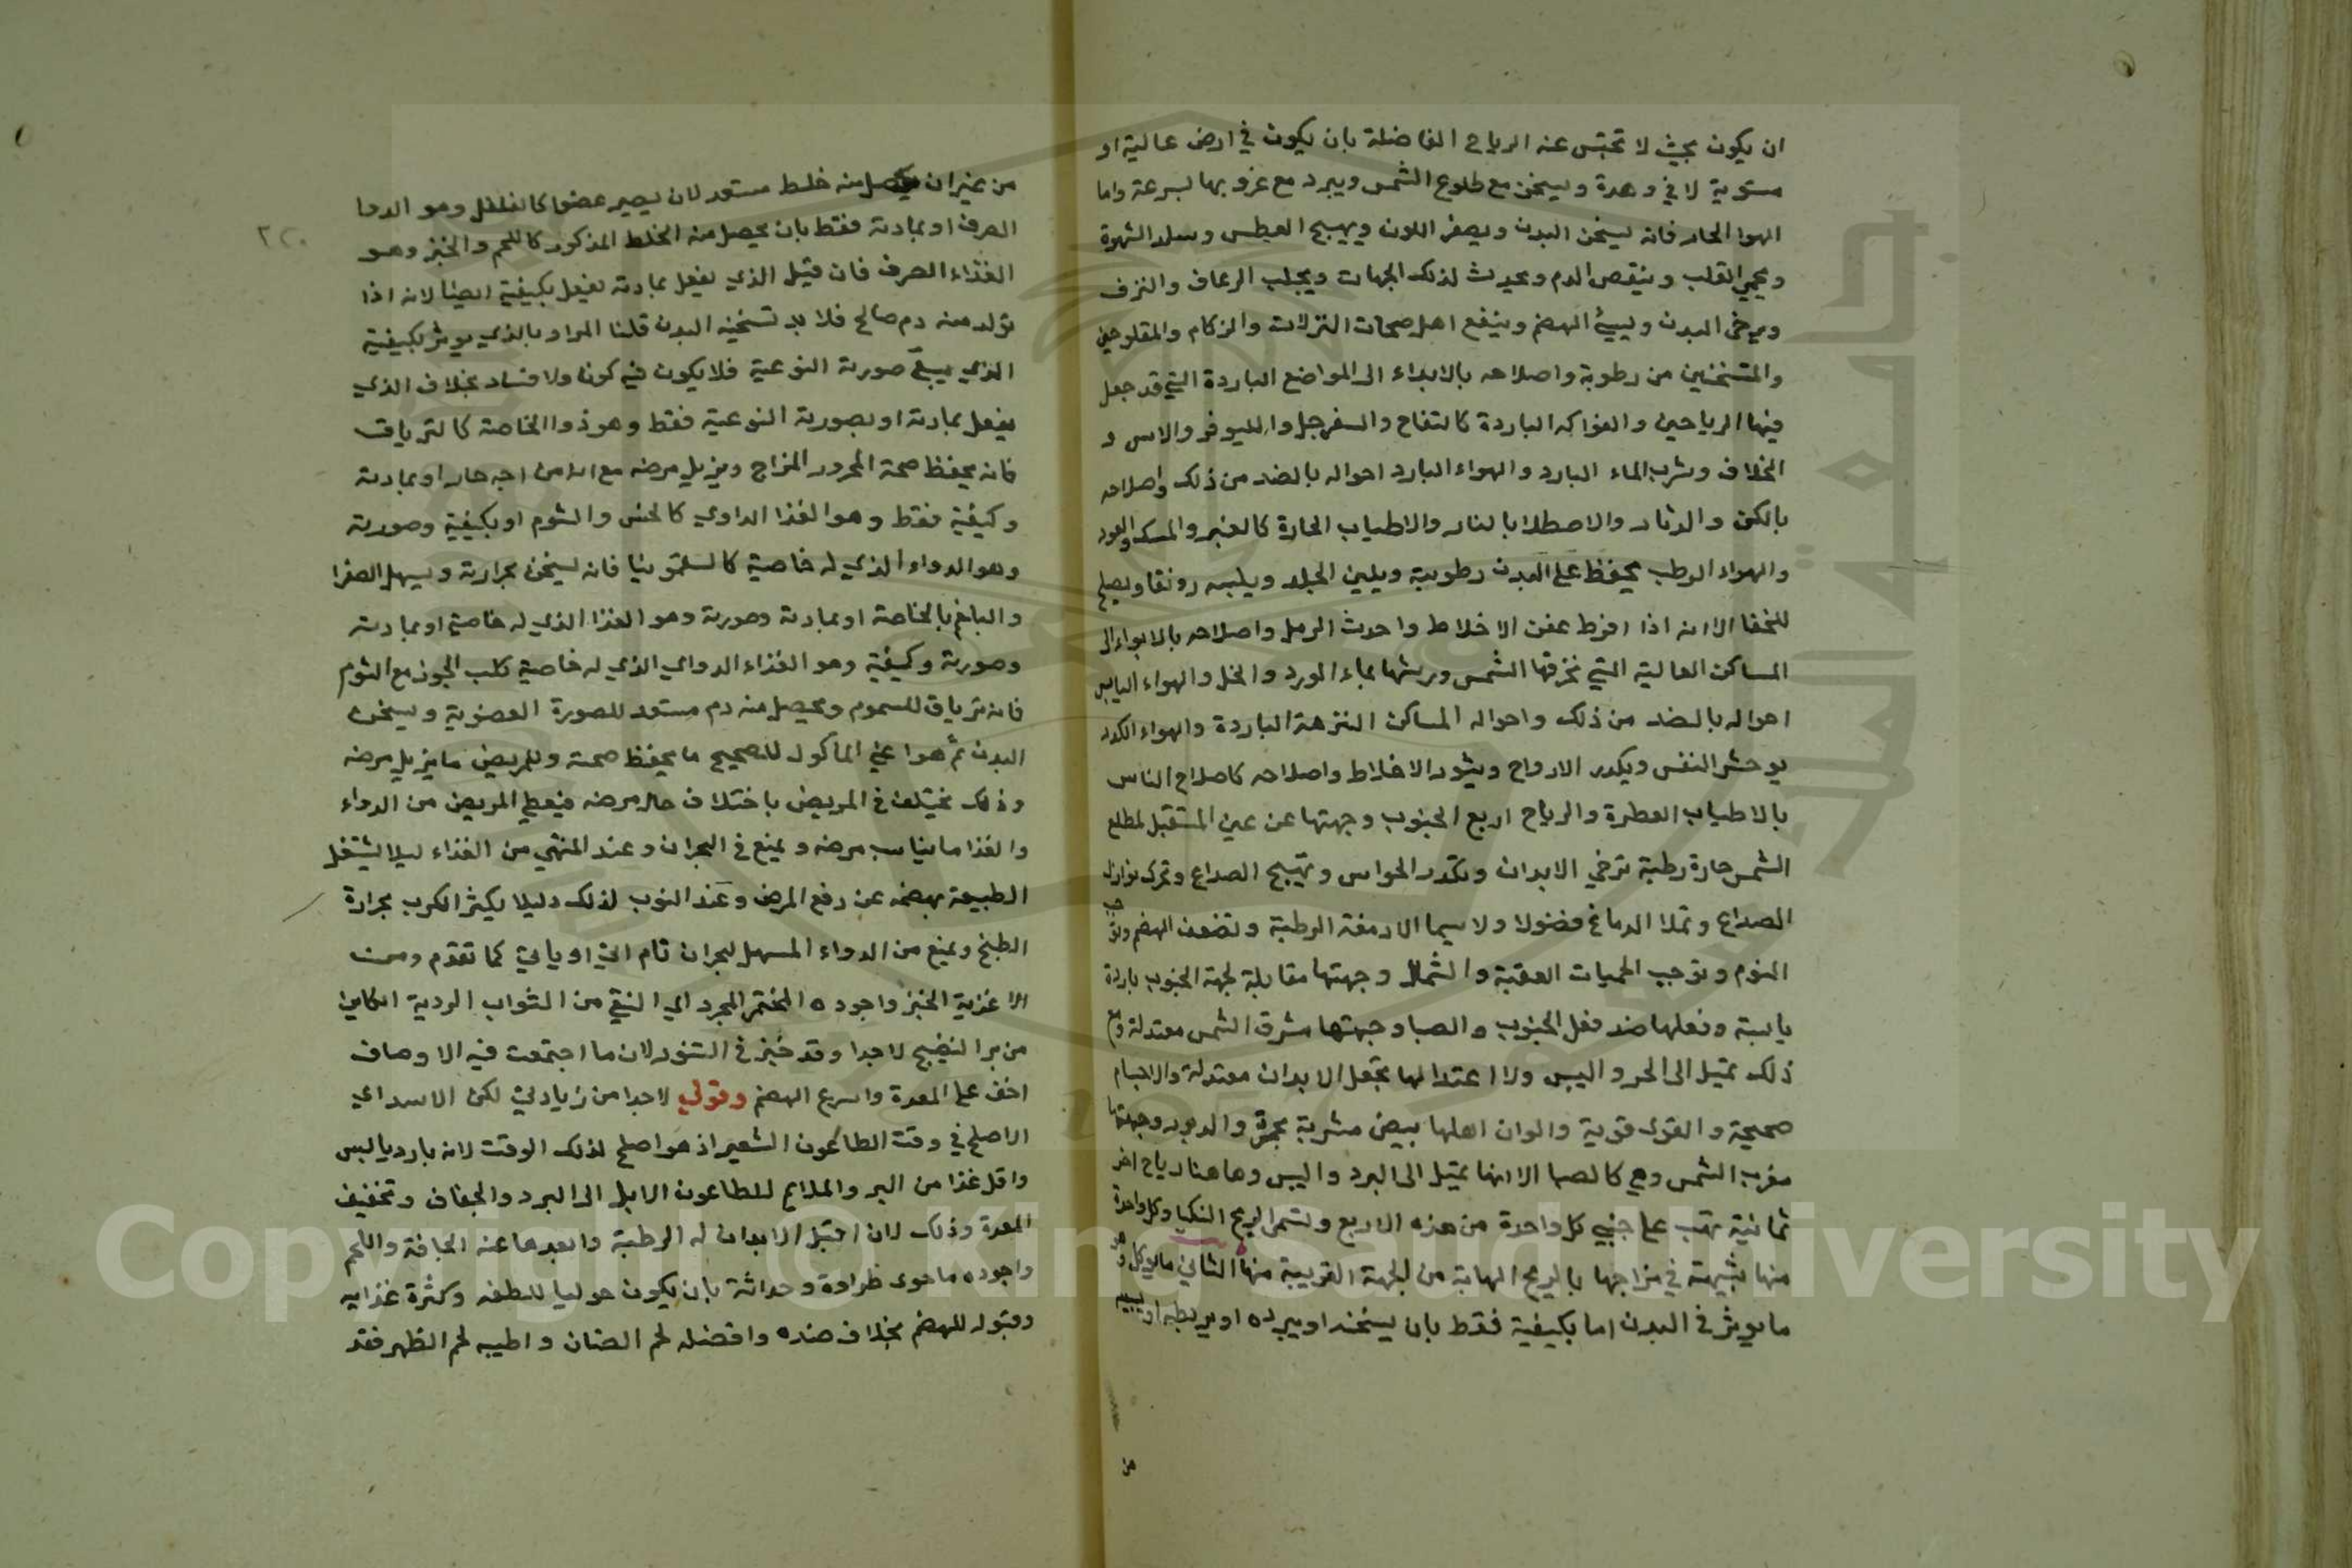 ان يكون بحيث لا تحتبس عنه الرياح الفاضلة بان يكون في ارض عالية او
مستوية لا في وهدة ويسخن مع طلوع الشمس ويبرد مع غروبها بسرعة واما
الهوا الحار فانه يسخن البدن ويصفر اللون ويهيج العطس الشهوة
ويحمي القلب وينقص الدم ويحدث لذلك الجهات ويجلب الرعاف والنزف
ويرخى البدن ويسيئ الهضم وينفع اهل النزلات والزكام والمفلوجين
والمتشنجين من رطوبة واصلاحه الى المواضع الباردة التي قد جعل
فيها الرياحين والفواكه الباردة كالتفاح والسفرجل والاس و
الخلاف وشرب الماء البارد والهواء البارد احواله بالضد من ذلك واصلاحه
بالكن والدثار والاصطلا بالنار والاطياب الحارة كالعنبر والمسك والعود
والهواء الرطب يحفظ على البدن رطوبية ويلين الجلد ويلبسه رونقا ويصلح
الا انه اذا افرط عفن الاخلاط واحدث الرمل واصلاحه بالايواء الى
المساكن العالية التي تخرقها الشمس ورشها بماء الورد والخل والهواء اليابس
احواله بالضد من ذلك واحواله المساكن النزهة الباردة والهواء الكدر
يوحش النفس ويكدر الارواح ويثور الاخلاط واصلاحه كاصلاح الناس
بالاطياب العطرة والرياح اربع الجنوب وجهتها عن عين المستقبل لمطلع
الشمس حارة رطبة ترخي الابدان وتكدر الحواس وتهيج الصداع وتحرك نوازل
الصداع وتملا الدماغ فضولا ولا سيما الادمغة الرطبة وتضعف الهضم
النوم وتوجب الحميات العفنة والشمال وجهتها مقابلة لجهة الجنوب باردة
يابسة وفعلها ضد فعل الجنوب والصبا وجهتها مشرق الشمس معتدلة ومع
ذلك تميل الى الحر واليبس ولاعتدالها تجعل الابدان معتدلة والاجسام
صحيحة والقوى قوية والوان اهلها بيض مشربة بحمرة والدبور وجهتها
مغرب الشمس وهي كالصبا الا انها تميل الى البرد واليبس وهاهنا رياح اخر
ثمانية تهب على جنبي كل واحدة من هذه الاربع وتسمى الريح النكبا وكل واحدة
منها شبيهة في مزاجها بالريح الهابة من الجهة القريبة منها الثاني ما يوكل
ما يوثر في البدن اما بكيفية فقط بان يسخنه او يبرده او يرطبه او ييبسه
من
٢٢٠
من غير ان يحصل منه خلط مستعد لان يصير عضوا كالفلفل وهو الدوا
الصرف او بمادته فقط بان يحصل منه الخلط المذكور كاللحم والخبز وهو
الغذاء الصرف فان قيل الذي يفعل بمادته يفعل بكيفية ايضا لانه اذا
تولد منه دم صالح فلا بد تسخينه البدن قلنا المراد بالذي يوثر بكيفية
الذي يبقى صورته النوعية فلا يكون فيه كون ولا فساد بخلاف الذي
يفعل بمادته او بصورته النوعية فقط وهو ذو الخاصة كالترياق
فانه يحفظ صحة المحرور المزاج ويزيل مرضه مع انه حار او بمادته
وكيفية فقط وهو الغذا الداوي كالخس والثوم او بكيفية وصورته
وهو الدواء الذي له خاصية كالسقمونيا فانه يسخن بحرارته ويسهل الصفرا
والبلغم بالخاصة او بمادته وصورته وهو الغذا الذي له خاصية او بمادته
وصورته وكيفية وهو الغذاء الدواي الذي له خاصية كلب الجوز مع الثوم
فانه ترياق للسموم ويحصل منه دم مستعد للصورة العضوية ويسخن
البدن ثم هو اعني الماكول للصحيح ما يحفظ صحته وللمريض ما يزيل مرضه
وذلك يختلف في المريض باختلاف حال مرضه فيعطى المريض من الدواء
والغذا ما يناسب مرضه ويمنع في البحران وعند المنتهي من الغذاء ليلا يشتغل
الطبيعة بهضمه عن دفع المرض وعند النوب لذلك وليلا يكثر الكرب بحرارة
الطبخ ويمنع من الدواء المسهل لبحران تام اتي او ياتي كما تقدم ومن
الاغذية الخبز واجوده المختمر المجرد اي النقي من الشواب الردية الكاين
من بر النضيج لا جدا وقد خبز في التنور لان ما اجتمعت فيه الاوصاف
اخف على المعدة واسرع الهضم وقولي لا جدا من زيادتي لكن
الاصلح في وقت الطاعون الشعير اذ هو اصلح لذلك الوقت لانه بارد يابس
واقل غذا من البر والملايم للطاعون الى البرد والجفاف وتخفيف
المعدة وذلك لان اقبل الابدان له الرطبة وابعدها عنه الجافة واللحم
واجوده ما حوى طراوة وحداثة بان يكون حوليا للطفه وكثرة غذايه
وقبوله للهضم بخلاف ضده وافضله لحم الضان واطيبه لحم الظهر فقد
Copyright © King Saud University